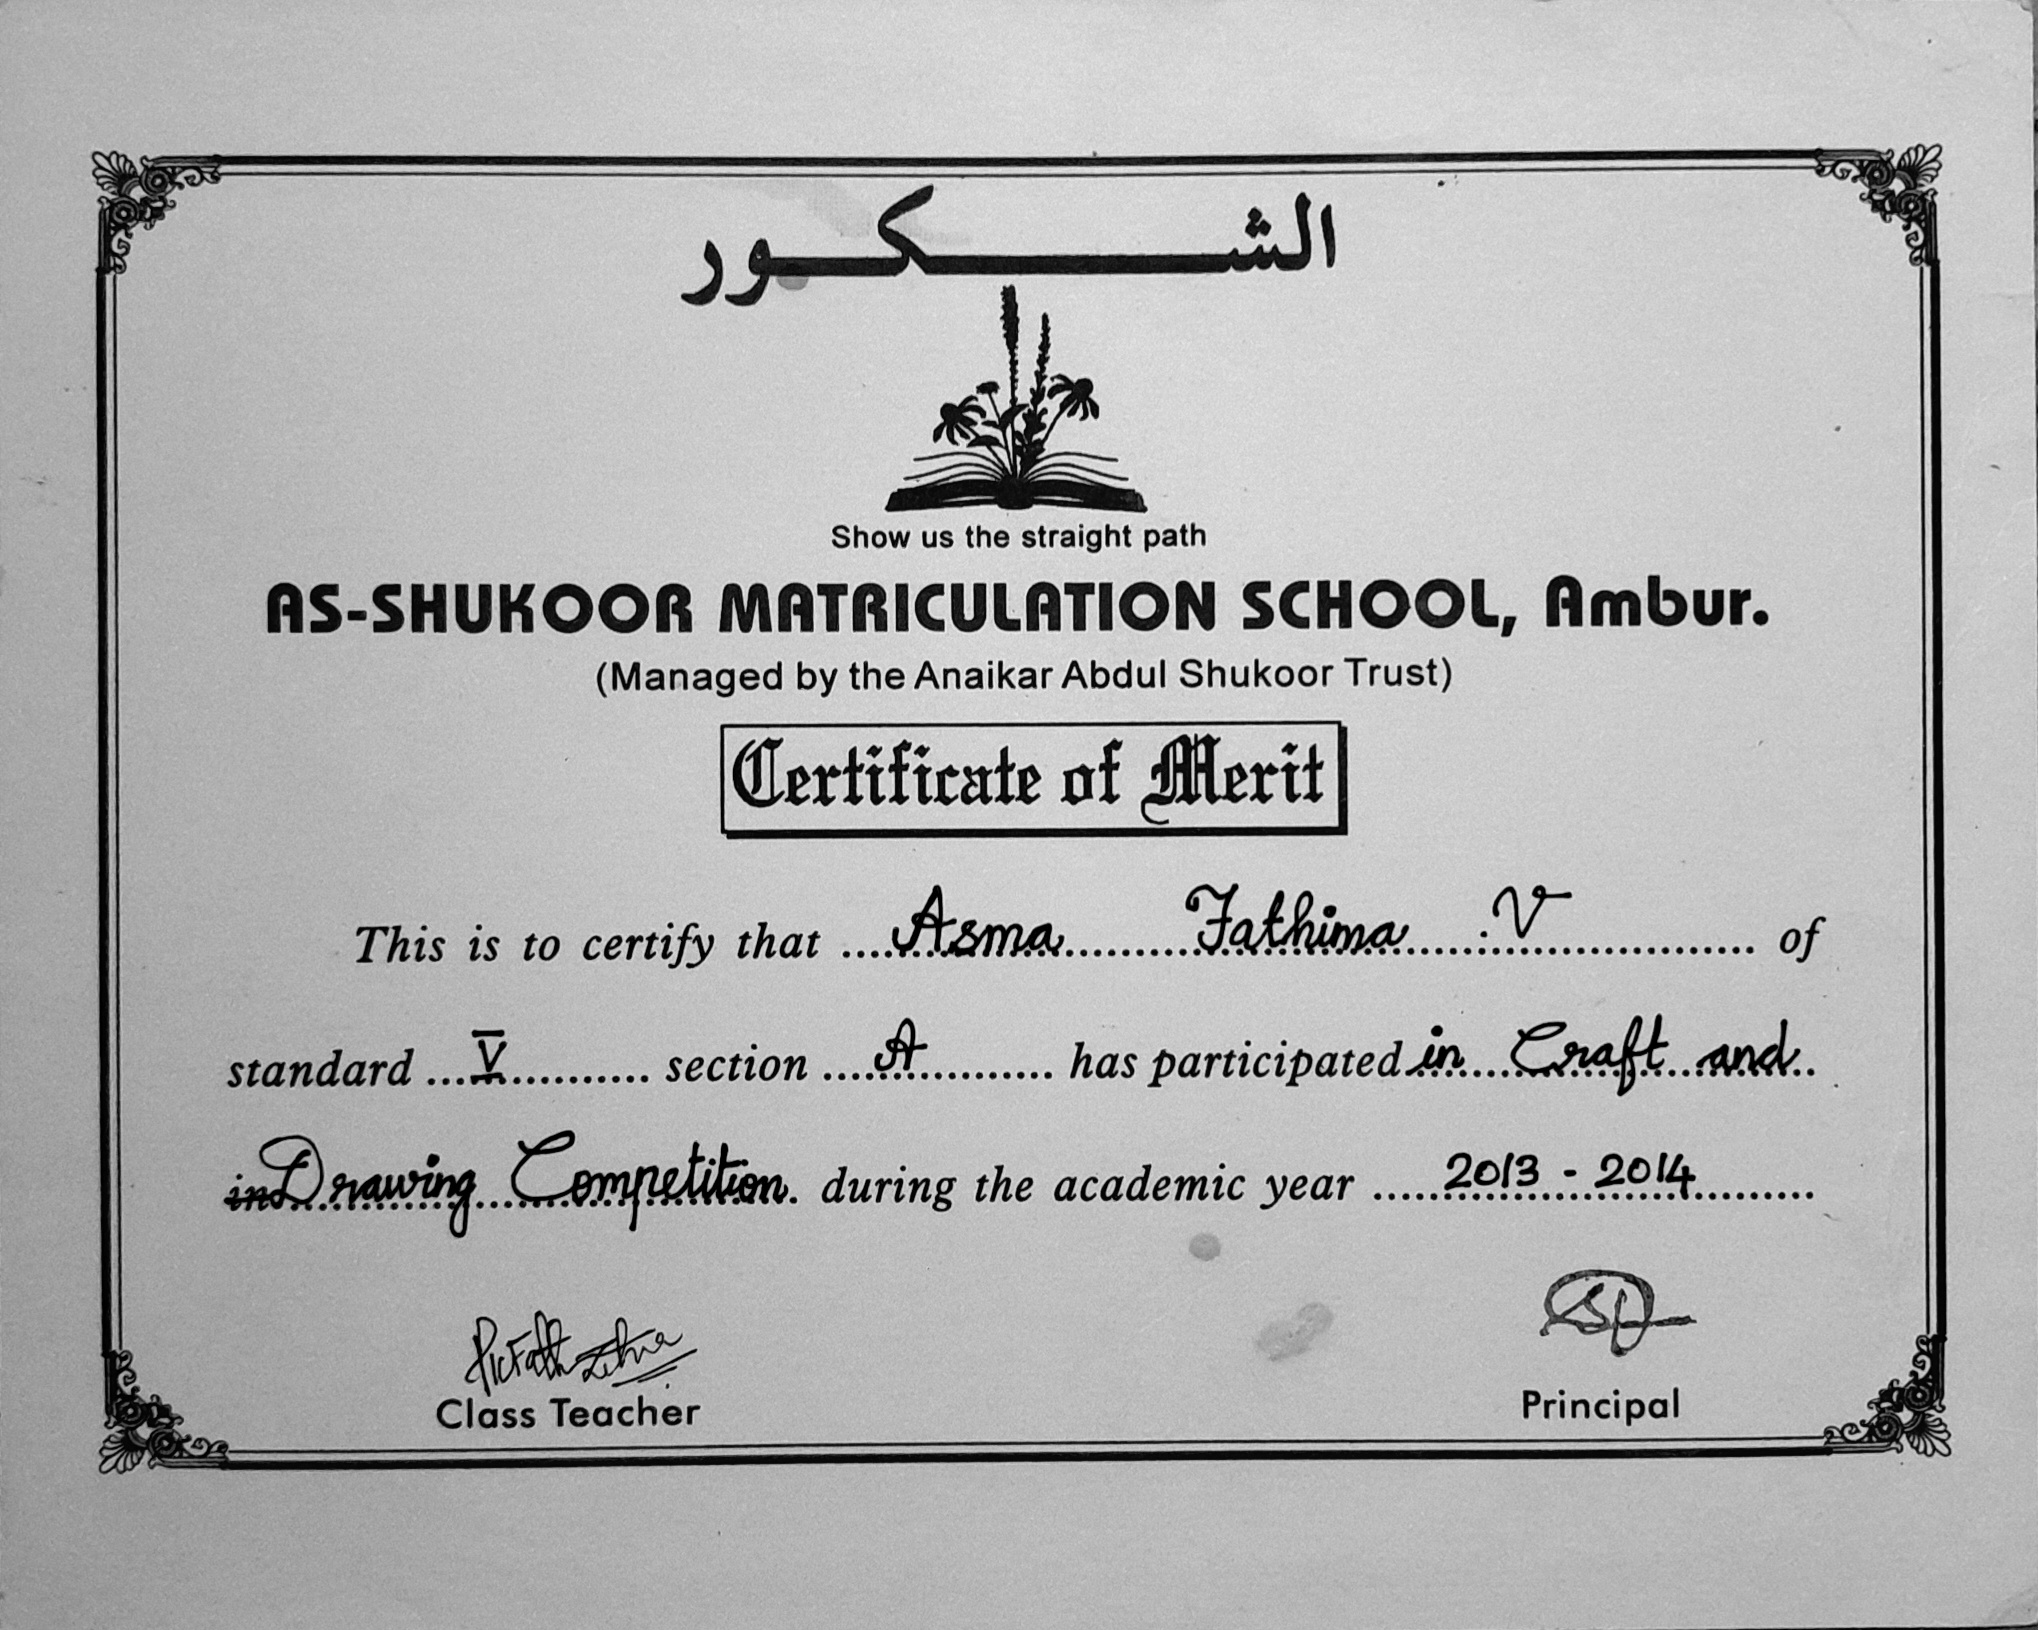 الشكور
Show us the straight path
AS-SHUKOOR MATRICULATION SCHOOL, Ambur.
(Managed by the Anaikar Abdul Shukoor Trust)
Certificate of Merit
This is to certify that Asma Fathima . V of
standard V section A has participated in Craft and
in Drawing Competition. during the academic year 2013 - 2014
Class Teacher
Principal